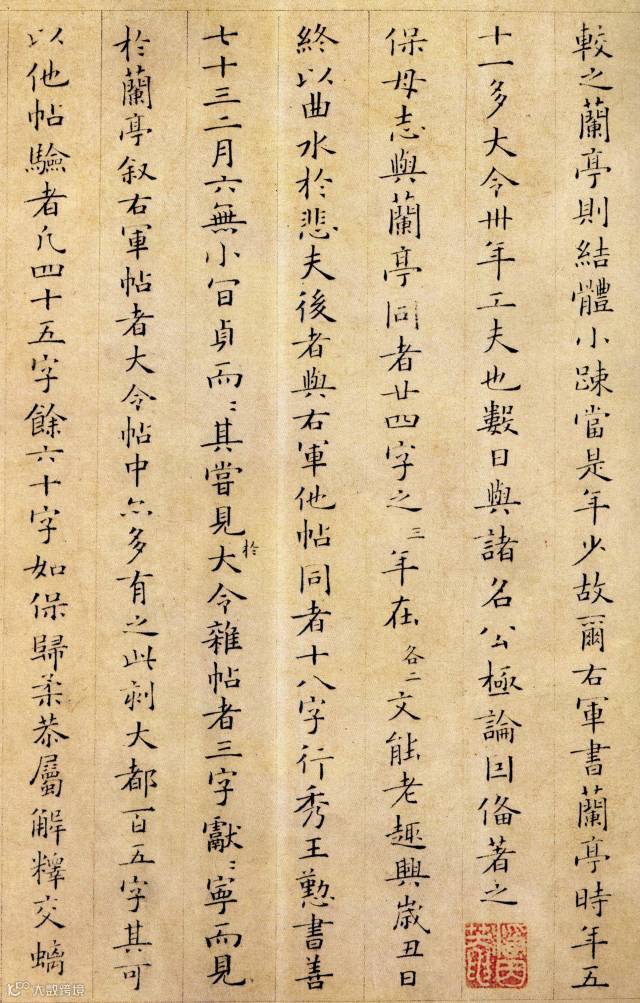 較之蘭亭則結體小踈當是年少故爾右軍書蘭亭時年五
十一多大令卅年工夫也數日與諸名公極論因俻著之
保母志與蘭亭同者廿四字之三年在各二文能老趣興嵗丑日
終以曲水於悲夫後者與右軍他帖同者十八字行秀王懃書善
七十三二月六無小宜貞而〻其嘗見於大令雜帖者三字獻〻寧而見
於蘭亭叙右軍帖者大令帖中亦多有之此刻大都一百五字其可
以他帖驗者凡四十五字餘六十字如保歸柔恭屬解釋交螭
大数跨境